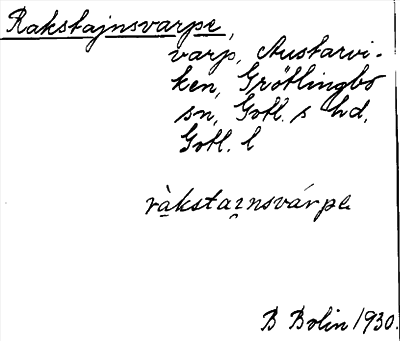 Rakstajnsvarpe,
varp, Austarvi-
ken, Grötlingbo
sn, Gotl. s hd,
Gotl. l
ràkstai̯nsvárpe
B Bolin 1930.